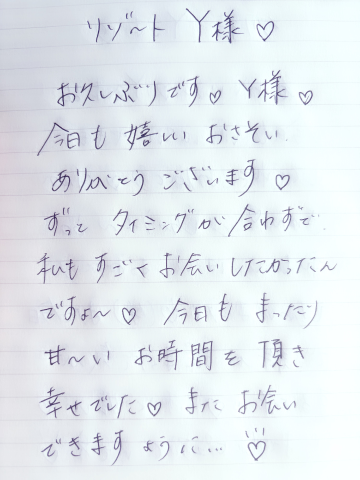 リゾート Y様♡
お久しぶりです♡ Y様♡
今日も 嬉しい おさそい
ありがとう ございます♡
ずっと タイミングが 合わずで
私も すごく お会いしたかったん
ですよ〜♡ 今日も まったり
甘〜い お時間を 頂き
幸せでした♡ また お会い
できます ように…♡